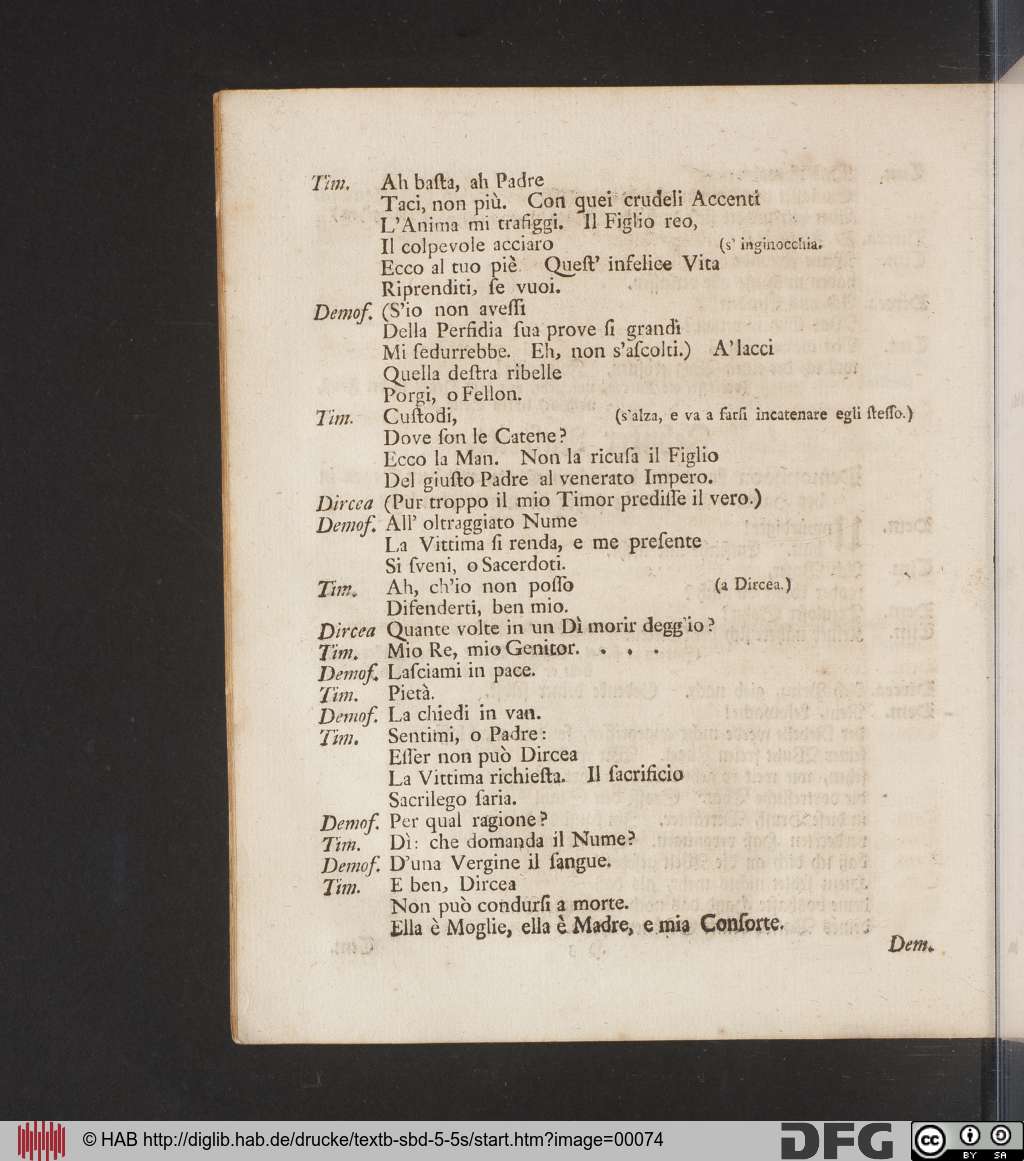 Tim. Ah baſta, ah Padre
Taci, non più. Con quei crudeli Accenti
L'Anima mi trafiggi. Il Figlio reo,
Il colpevole acciaro (s' inginocchia.
Ecco al tuo piè Queſt' infelice Vita
Riprenditi, ſe vuoi.
Demof. (S'io non aveſſi
Della Perfidia ſua prove ſi grandi
Mi ſedurrebbe. Eh, non s'aſcolti.) A' lacci
Quella deſtra ribelle
Porgi, o Fellon.
Tim. Cuſtodi, (s'alza, e va a farſi incatenare egli ſteſſo.)
Dove ſon le Catene?
Ecco la Man. Non la ricuſa il Figlio
Del giuſto Padre al venerato Impero.
Dircea (Pur troppo il mio Timor prediſſe il vero.)
Demof. All' oltraggiato Nume
La Vittima ſi renda, e me preſente
Si ſveni, o Sacerdoti.
Tim. Ah, ch'io non poſſo (a Dircea.)
Difenderti, ben mio.
Dircea Quante volte in un Dì morir degg'io?
Tim. Mio Re, mio Genitor. . . .
Demof. Laſciami in pace.
Tim. Pietà.
Demof. La chiedi in van.
Tim. Sentimi, o Padre:
Eſſer non può Dircea
La Vittima richieſta. Il ſacrificio
Sacrilego ſaria.
Demof. Per qual ragione?
Tim. Dì: che domanda il Nume?
Demof. D'una Vergine il ſangue.
Tim. E ben, Dircea
Non può condurſi a morte.
Ella è Moglie, ella è Madre, e mia Conſorte.
Dem.
© HAB http://diglib.hab.de/drucke/textb-sbd-5-5s/start.htm?image=00074
DFG
cc BY SA